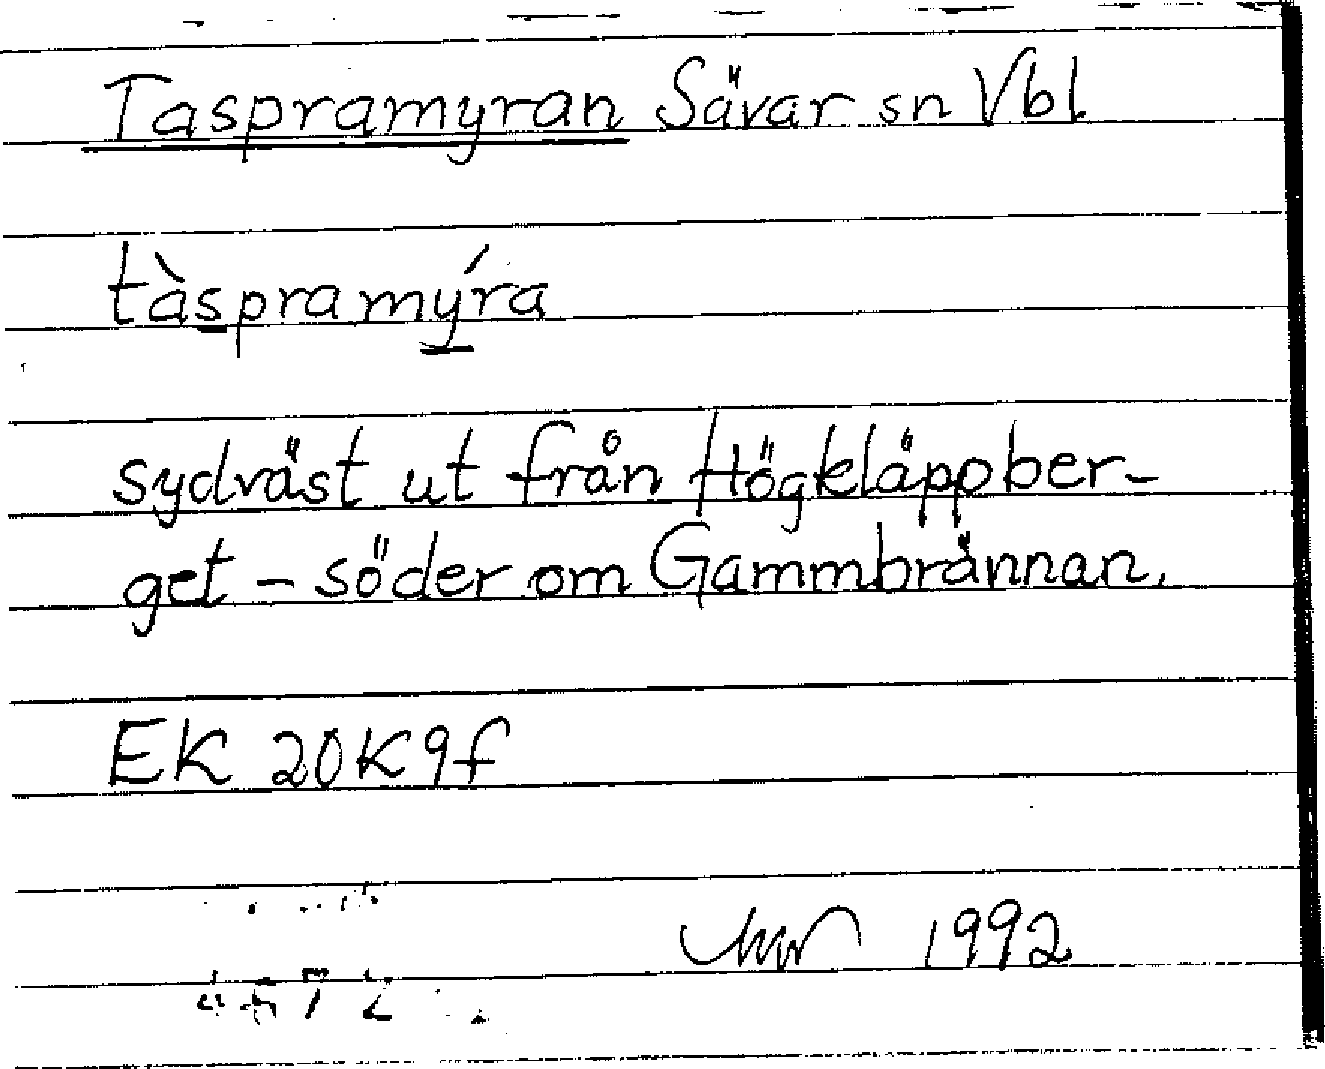 Taspramyran Sävar sn Vbl
tàspramýra
sydväst ut från Högkläppber-
get - söder om Gammbrännan.
EK 20K9f
1992